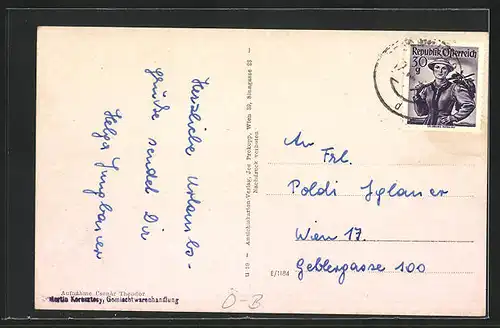 Herzliche Urlaubs-
grüße sendet Dir
Helga Jungbauer
Aufnahme Csenár Theodor
Martin Keresztesy, Gemischtwarenhandlung
u 79 - Ansichtskarten-Verlag, Jos Prokopp, Wien 23
Nachdruck verboten
Republik Österreich
30
g
An Frl.
Poldi Iglauer
Wien 17.
Geblergasse 100
E/1184
O-B